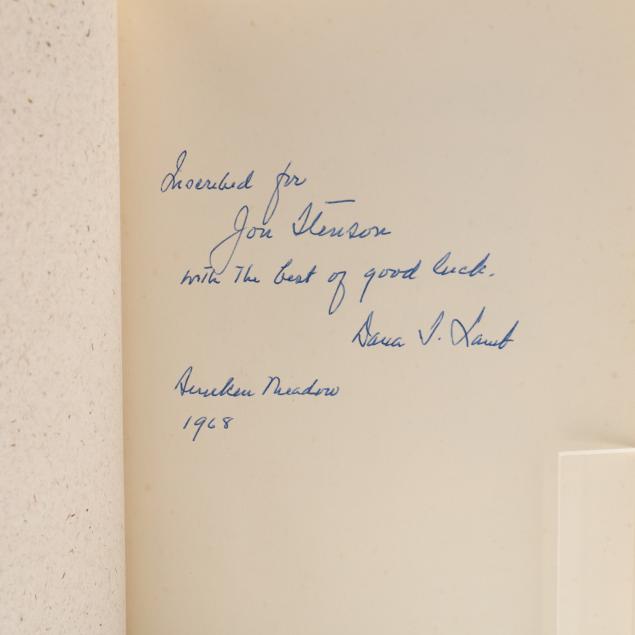 Inscribed for
Jon Stenson
with the best of good luck.
Dana S. Lamb
Sunken Meadow
1968